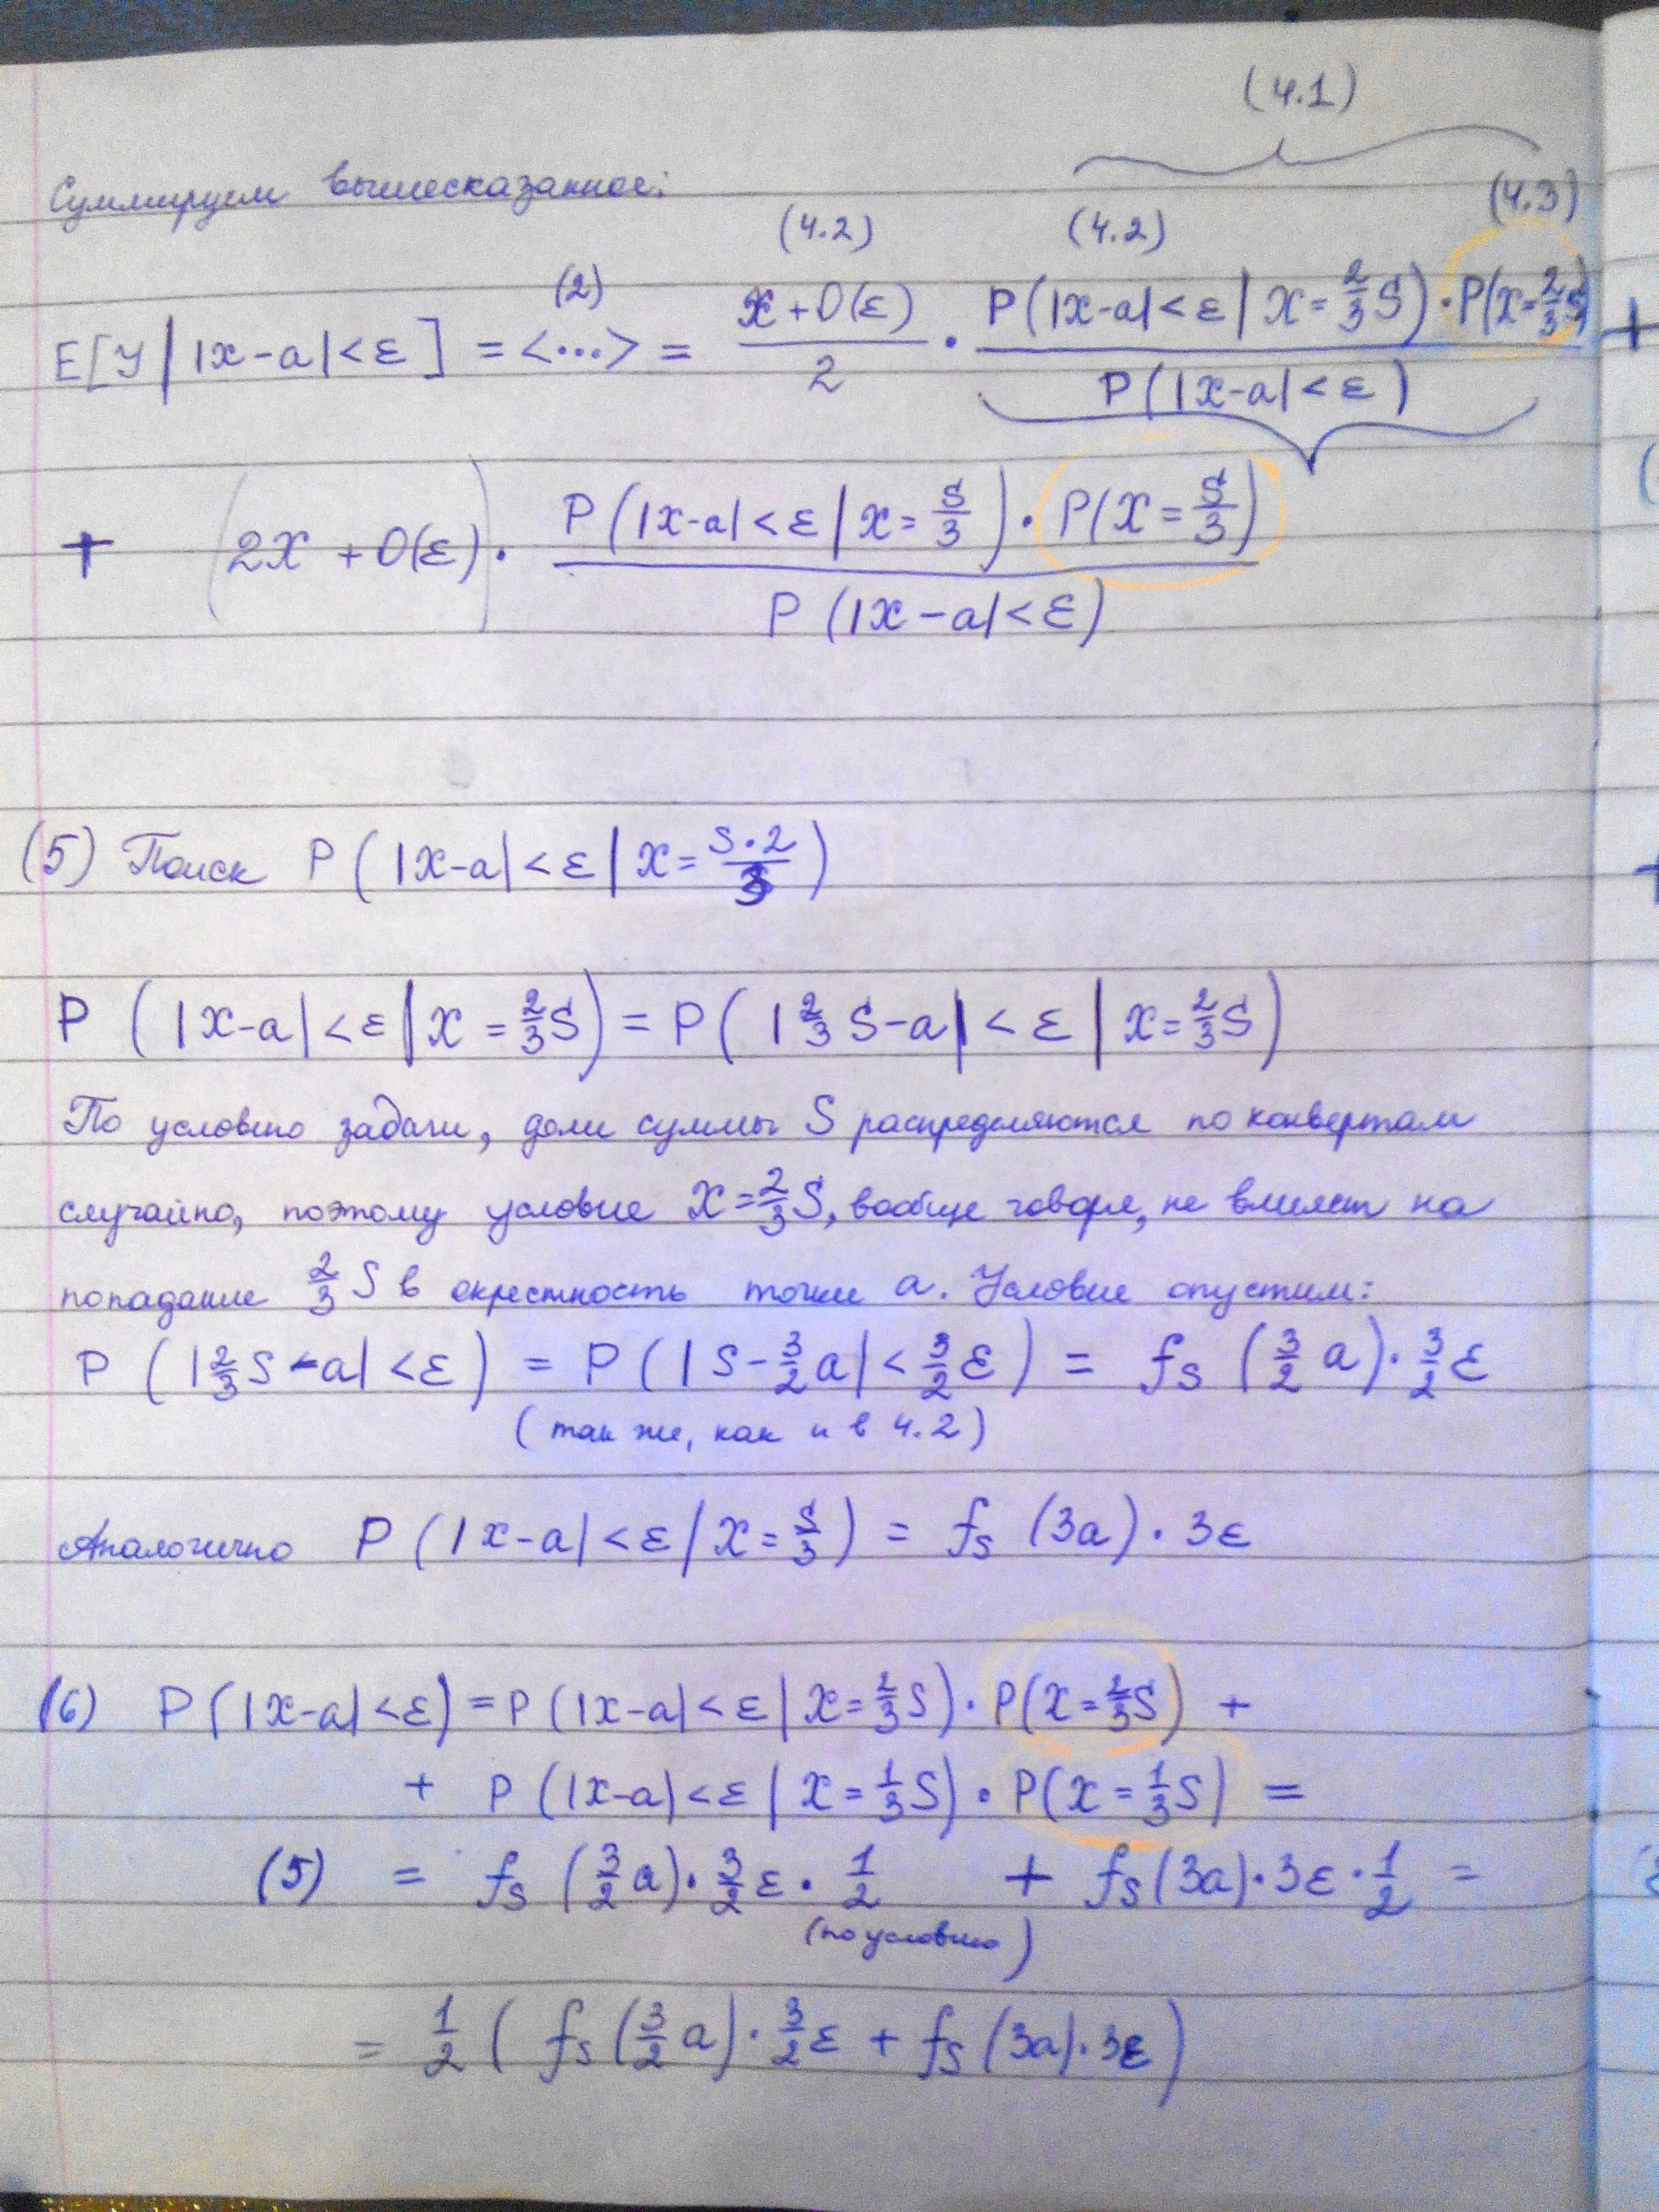 (4.1)
Суммируем вышесказанное:
(2) (4.2) (4.2) (4.3)
E[Y | |x-a|<ε] = <...> = (x+O(ε))/2 · P(|x-a|<ε | X=2/3 S)·P(X=2/3 S) / P(|x-a|<ε) +
+ (2X+O(ε)) · P(|x-a|<ε | x=S/3)·P(X=S/3) / P(|X-a|<ε)
(5) Поиск P(|X-a|<ε | X=S·2/3)
P(|X-a|<ε | X=2/3 S) = P(|2/3 S-a|<ε | X=2/3 S)
По условию задачи, доли суммы S распределяются по конвертам
случайно, поэтому условие X=2/3 S, вообще говоря, не влияет на
попадание 2/3 S в окрестность точки a. Условие опустим:
P(|2/3 S-a|<ε) = P(|S-3/2 a|<3/2 ε) = fs(3/2 a)·3/2 ε
(так же, как и в 4.2)
Аналогично P(|x-a|<ε | X=S/3) = fs(3a)·3ε
(6) P(|X-a|<ε) = P(|X-a|<ε | X=2/3 S)·P(X=2/3 S) +
+ P(|X-a|<ε | X=1/3 S)·P(X=1/3 S) =
(5) = fs(3/2 a)·3/2 ε·1/2 + fs(3a)·3ε·1/2 =
(по условию)
= 1/2 (fs(3/2 a)·3/2 ε + fs(3a)·3ε)